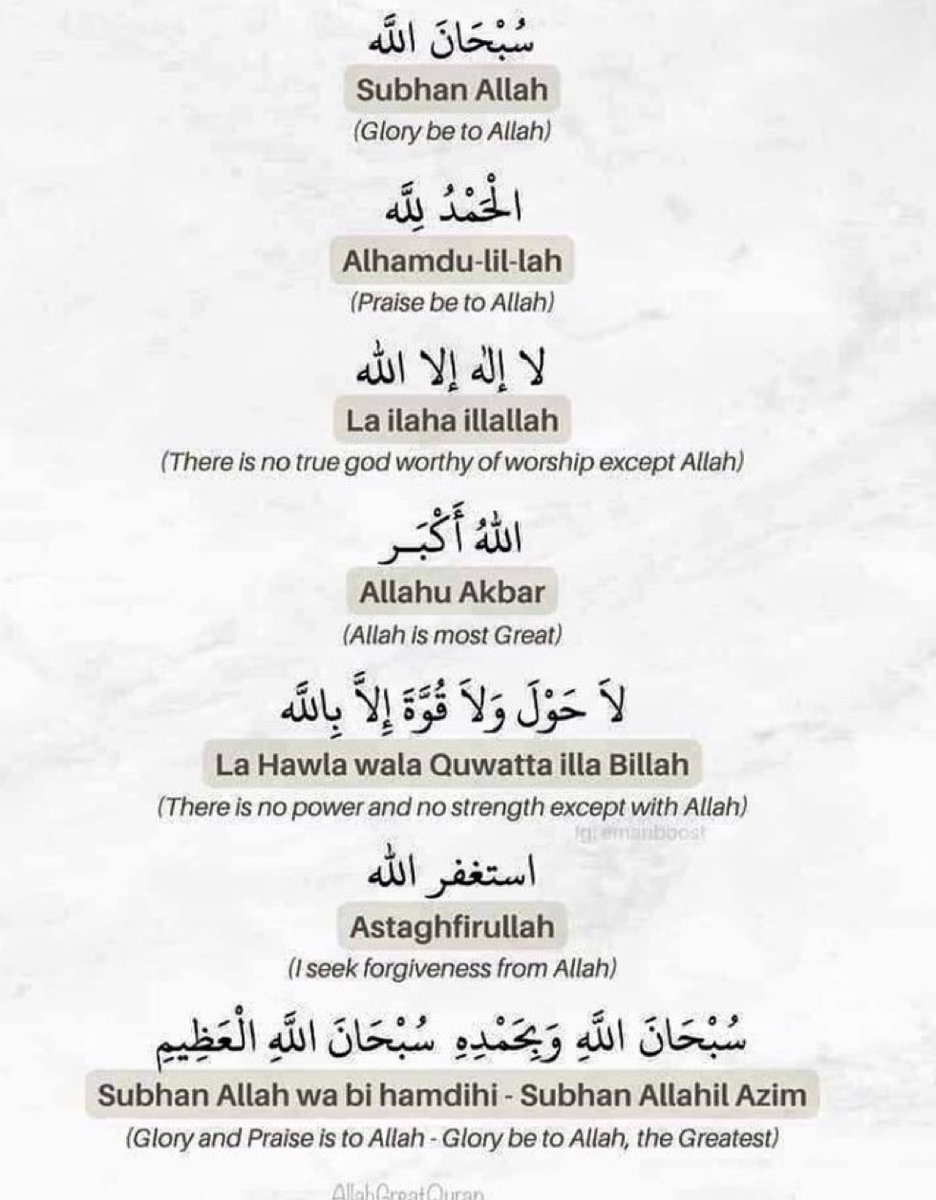 سُبْحَانَ اللَّه
Subhan Allah
(Glory be to Allah)
الْحَمْدُ لِلَّه
Alhamdu-lil-lah
(Praise be to Allah)
لا إله إلا الله
La ilaha illallah
(There is no true god worthy of worship except Allah)
اللهُ أَكْبَـر
Allahu Akbar
(Allah is most Great)
لاَ حَوْلَ وَلاَ قُوَّةَ إِلاَّ بِاللَّه
La Hawla wala Quwatta illa Billah
(There is no power and no strength except with Allah)
Ig: emanboost
استغفر الله
Astaghfirullah
(I seek forgiveness from Allah)
سُبْحَانَ اللَّهِ وَبِحَمْدِهِ سُبْحَانَ اللَّهِ الْعَظِيمِ
Subhan Allah wa bi hamdihi - Subhan Allahil Azim
(Glory and Praise is to Allah - Glory be to Allah, the Greatest)
AllahGreatQuran